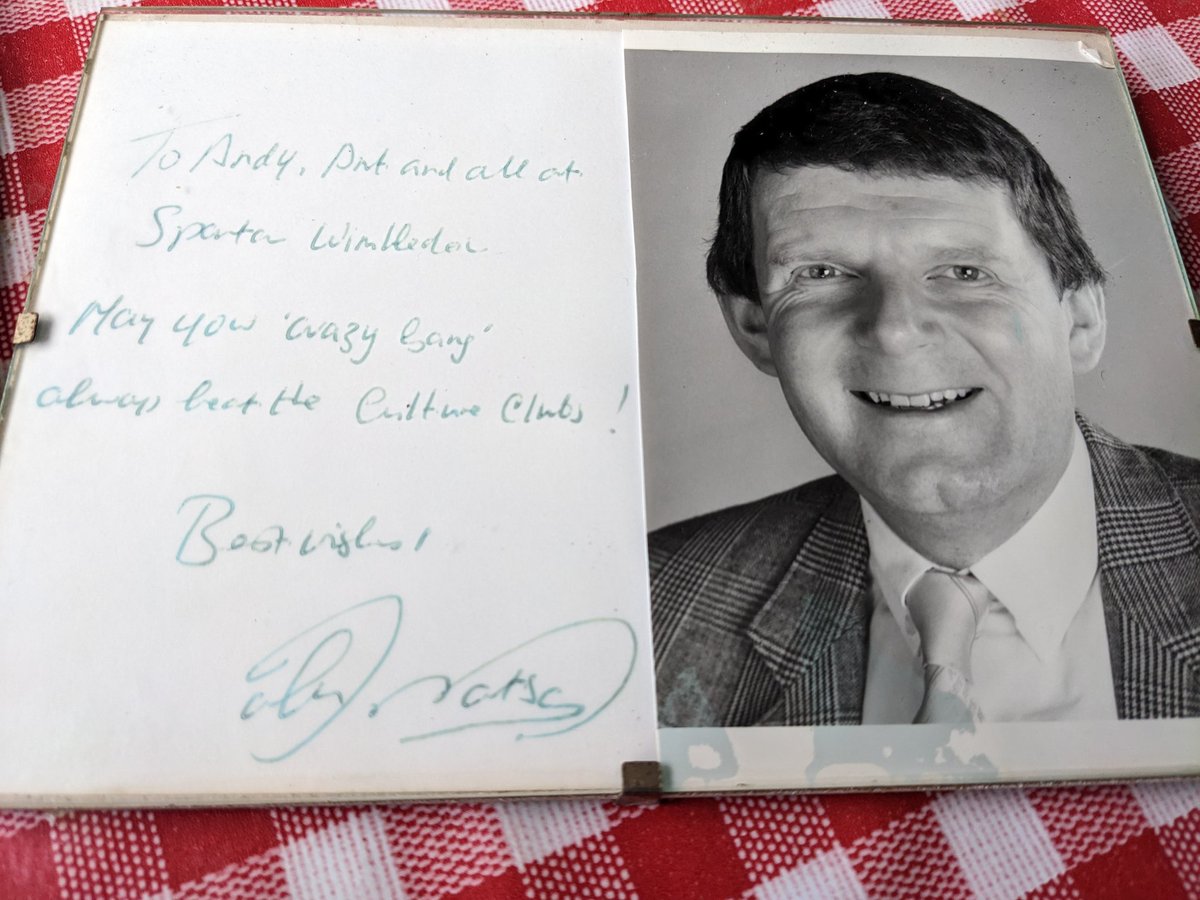 To Andy, Ant and all at
Sparta Wimbledon
May your 'crazy gang'
always beat the Culture Clubs!
Best wishes,
John Motson